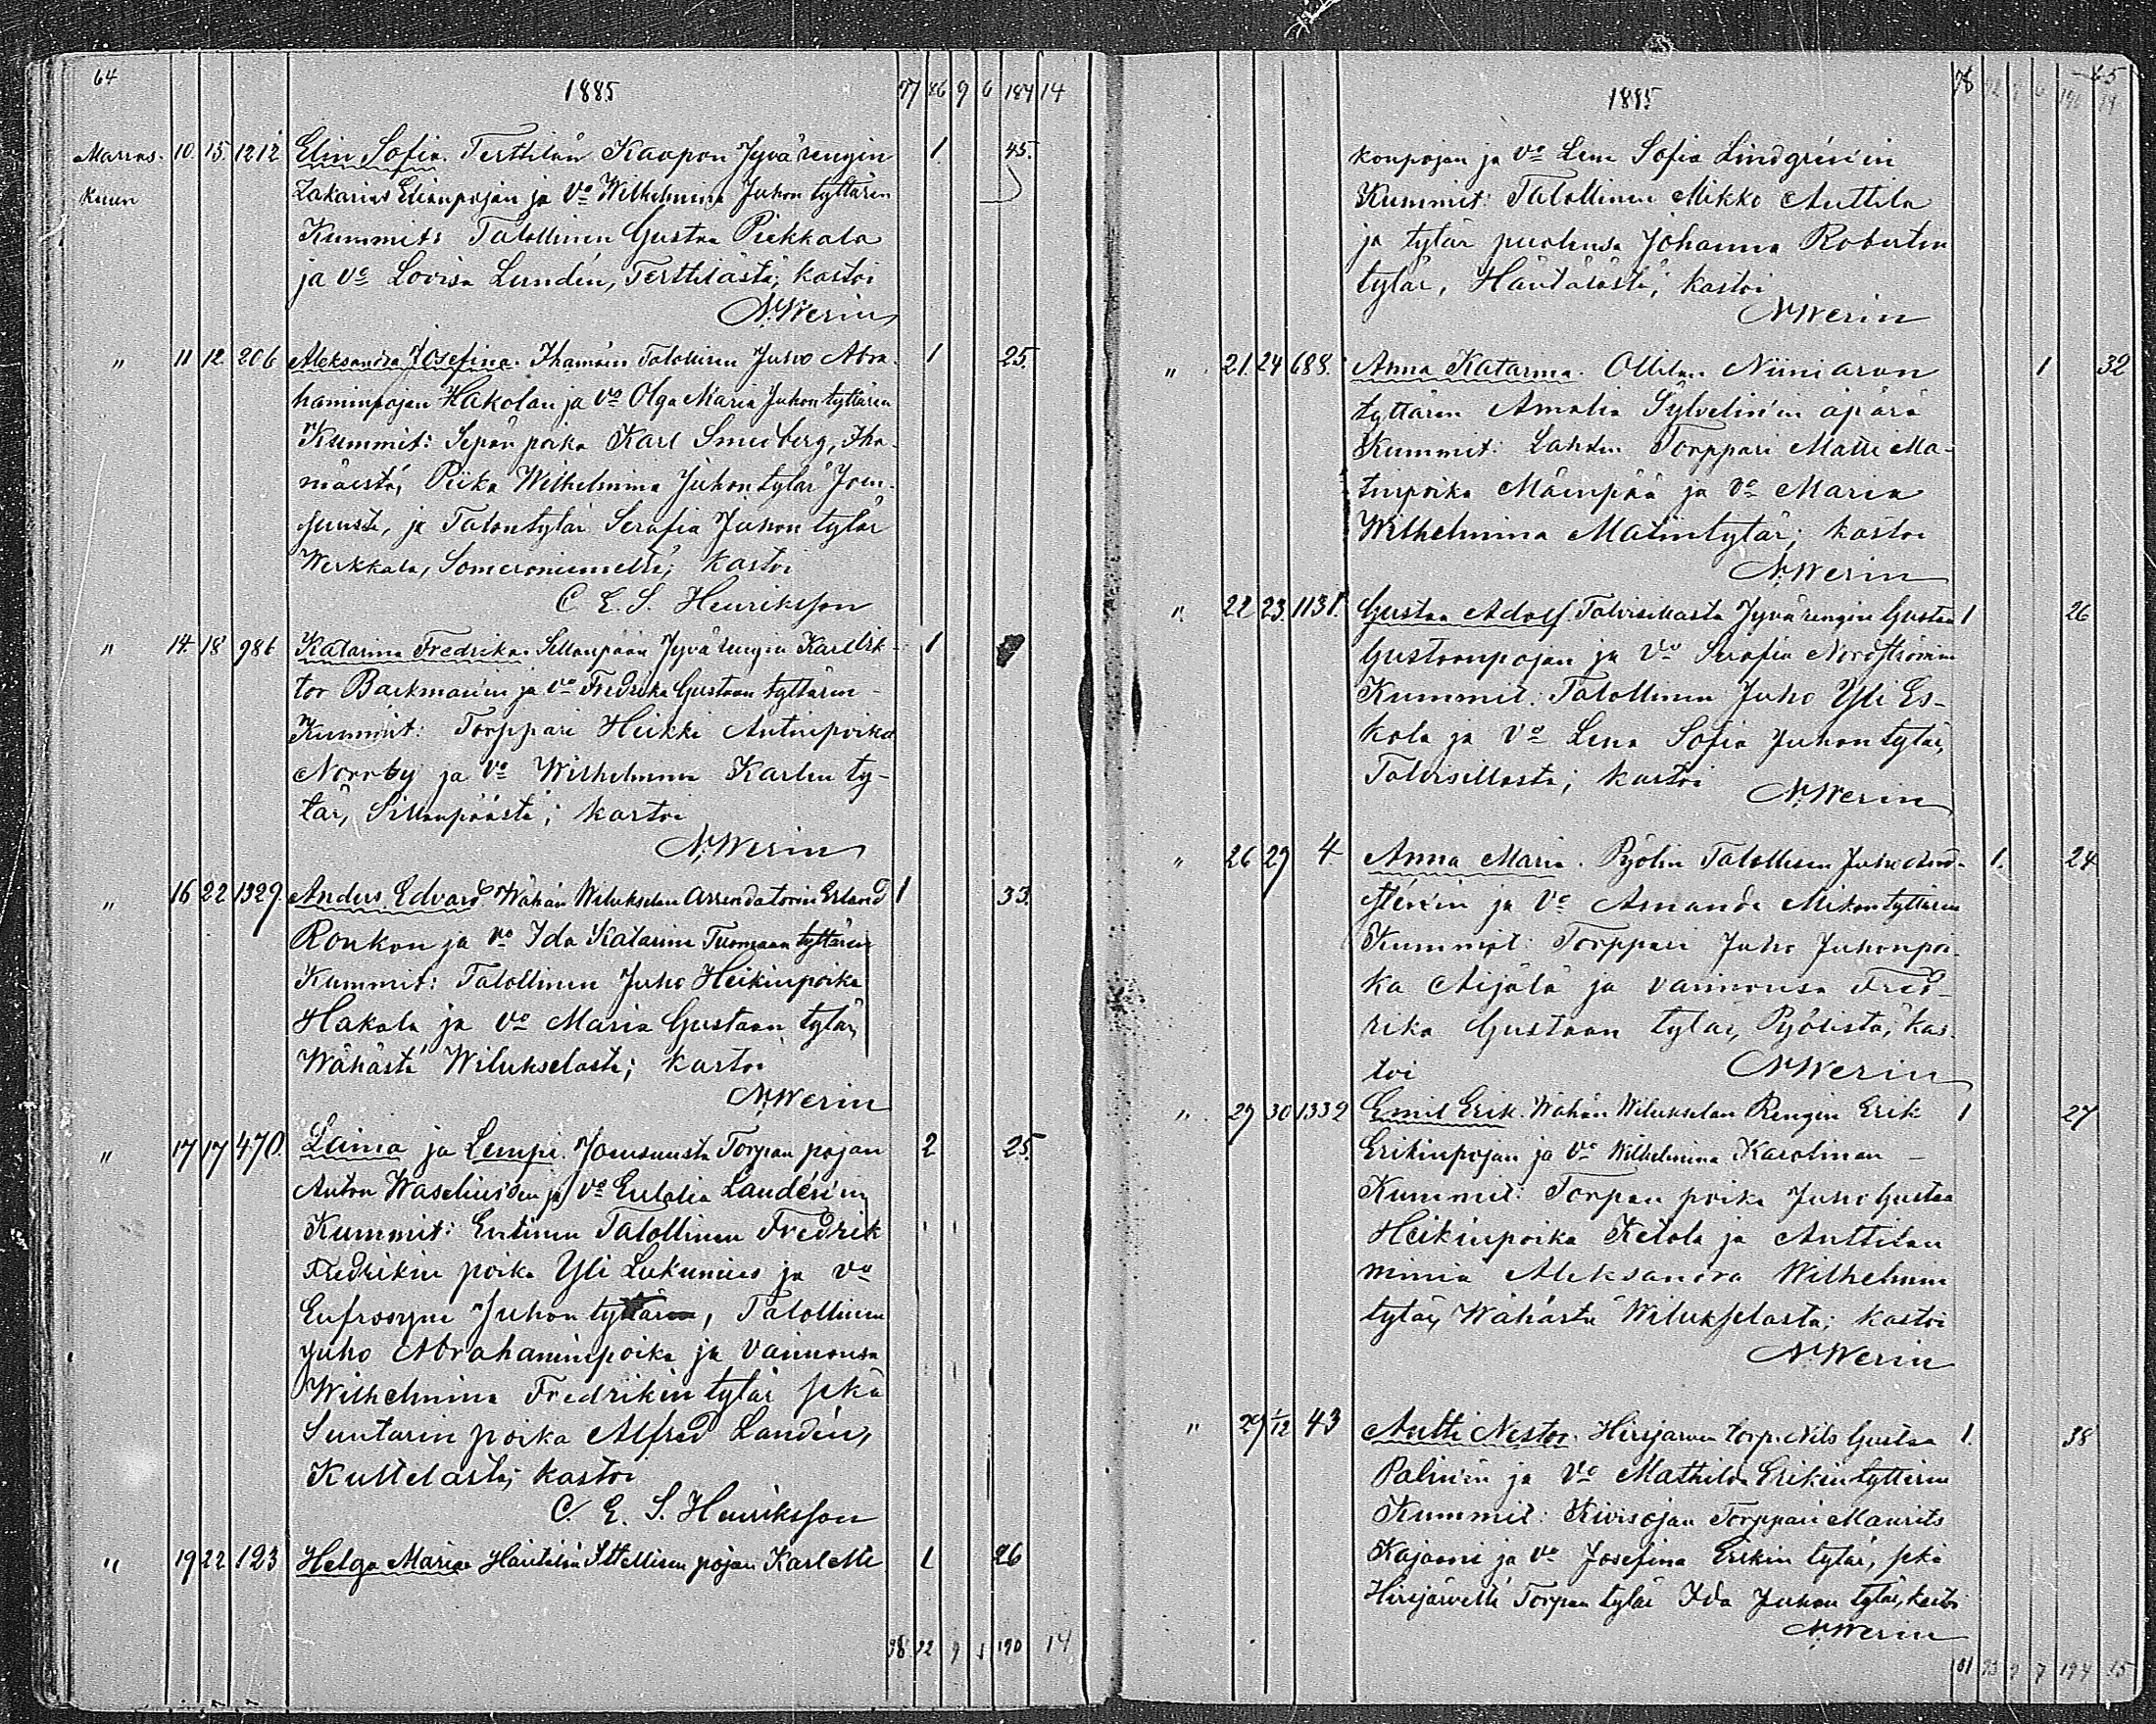 64
1885 77 86 9 6 184 14
Marras- 10. 15. 1212 Elin Sofia. Terttilän Kaapon Jyvärengin 1. 45.
kuun Zakarias Elianpojan ja vo Wilhelmina Juhon tyttären
Kummit: Talollinen Gustaa Piekkala
ja vo Lovisa Lundén, Terttilästä; kastoi
N. Werin
" 11 12. 206 Aleksandra Josefina. Ihamäen Talollisen Juho Abra- 1 25.
haminpojan Hakolan ja vo Olga Maria Juhon tyttären
Kummit: Sepän poika Karl Smedberg, Iha-
mäestä, Piika Wilhelmina Juhontytär Joen-
suusta, ja Talontytär Serafia Juhon tytär
Werkkala, Someroniemeltä; kastoi
C. E. S. Henriksson
" 14. 18 986 Katarina Fredrika. Sillanpään Jyvärengin Karl Vik- 1
tor Backman'in ja vo Fredrika Gustaan tyttären
Kummit: Torppari Heikki Antinpoika
Norrby ja vo Wilhelmina Karlin ty-
tär, Sillanpäästä; kastoi
N. Werin
" 16 22 1329. Anders Edvard Wähän Wilukselan Arrendatorin Erland 1 33.
Roukon ja vo Ida Katarina Tuomaan tyttären
Kummit: Talollinen Juho Heikinpoika
Hakala ja vo Maria Gustaan tytär,
Wähästä Wilukselasta; kastoi
N. Werin
" 17 17 470. Leima ja Lempi. Joensuusta Torpan pojan 2 25.
Anton Waselius'en ja vo Eulalia Landén'in
Kummit: Entinen Talollinen Fredrik
Fredrikin poika Yli Lukumies ja vo
Eufrosyne Juhon tyttären, Talollinen
Juho Abrahaminpoika ja vaimonsa
Wilhelmina Fredrikin tytär sekä
Suutarin poika Alfred Landén,
Kuttelasta; kastoi
C. E. S. Henriksson
" 19 22 123 Helga Maria Häntälän Itsellisen pojan Karl Matti 1 26
98 92 9 190 14
65
1885 98
konpojan ja vo Lena Sofia Lindgrén'in
Kummit: Talollinen Mikko Anttila
ja tytär puolensa Johanna Robertin
tytär, Häntälästä; kastoi
N. Werin
" 21. 24 688. Anna Katarina. Ollilan Niiniaron 1 32
tyttären Amalia Sylvelin'in äpärä
Kummit: Lahden Torppari Matti Ma-
tinpoika Mäenpää ja vo Maria
Wilhelmina Matintytär; kastoi
N. Werin
" 22 23. 1131. Gustaa Adolf. Talvisillasta Jyvärengin Gustaa 1 26
Gustaanpojan ja vo Serafia Nordströmin
Kummit: Talollinen Juho Yli Es-
kola ja vo Lena Sofia Juhon tytär,
Talvisillasta; kastoi
N. Werin
" 26 29 4 Anna Maria. Pyölin Talollisen Juho And- 1. 24
sténin ja vo Amanda Mikontyttären
Kummit: Torppari Juho Juhonpoi-
ka Äijälä ja vaimonsa Fred-
rika Gustaan tytär, Pyölistä; kas-
toi
N. Werin
" 29 30 1332 Emil Erik. Wähän Wilukselan Rengin Erik 1 27
Erikinpojan ja vo Wilhelmina Karolinan
Kummit: Torpan poika Juho Gustaa
Heikinpoika Ketola ja Anttilan
minia Aleksandra Wilhelmin
tytär, Wähästä Wilukselasta; kastoi
N. Werin
" 29 1/12 43 Antti Nestor. Hirsjärven torp. Nils Gustaa 1. 38
Palin'in ja vo Mathilda Erikin tyttären
Kummit: Kivisojan Torppari Maurits
Kajaani ja vo Josefina Erikin tytär, sekä
Hirsjärveltä Torpan tytär Ida Juhon tytär, kastoi
N. Werin
101 93 9 7 194 15